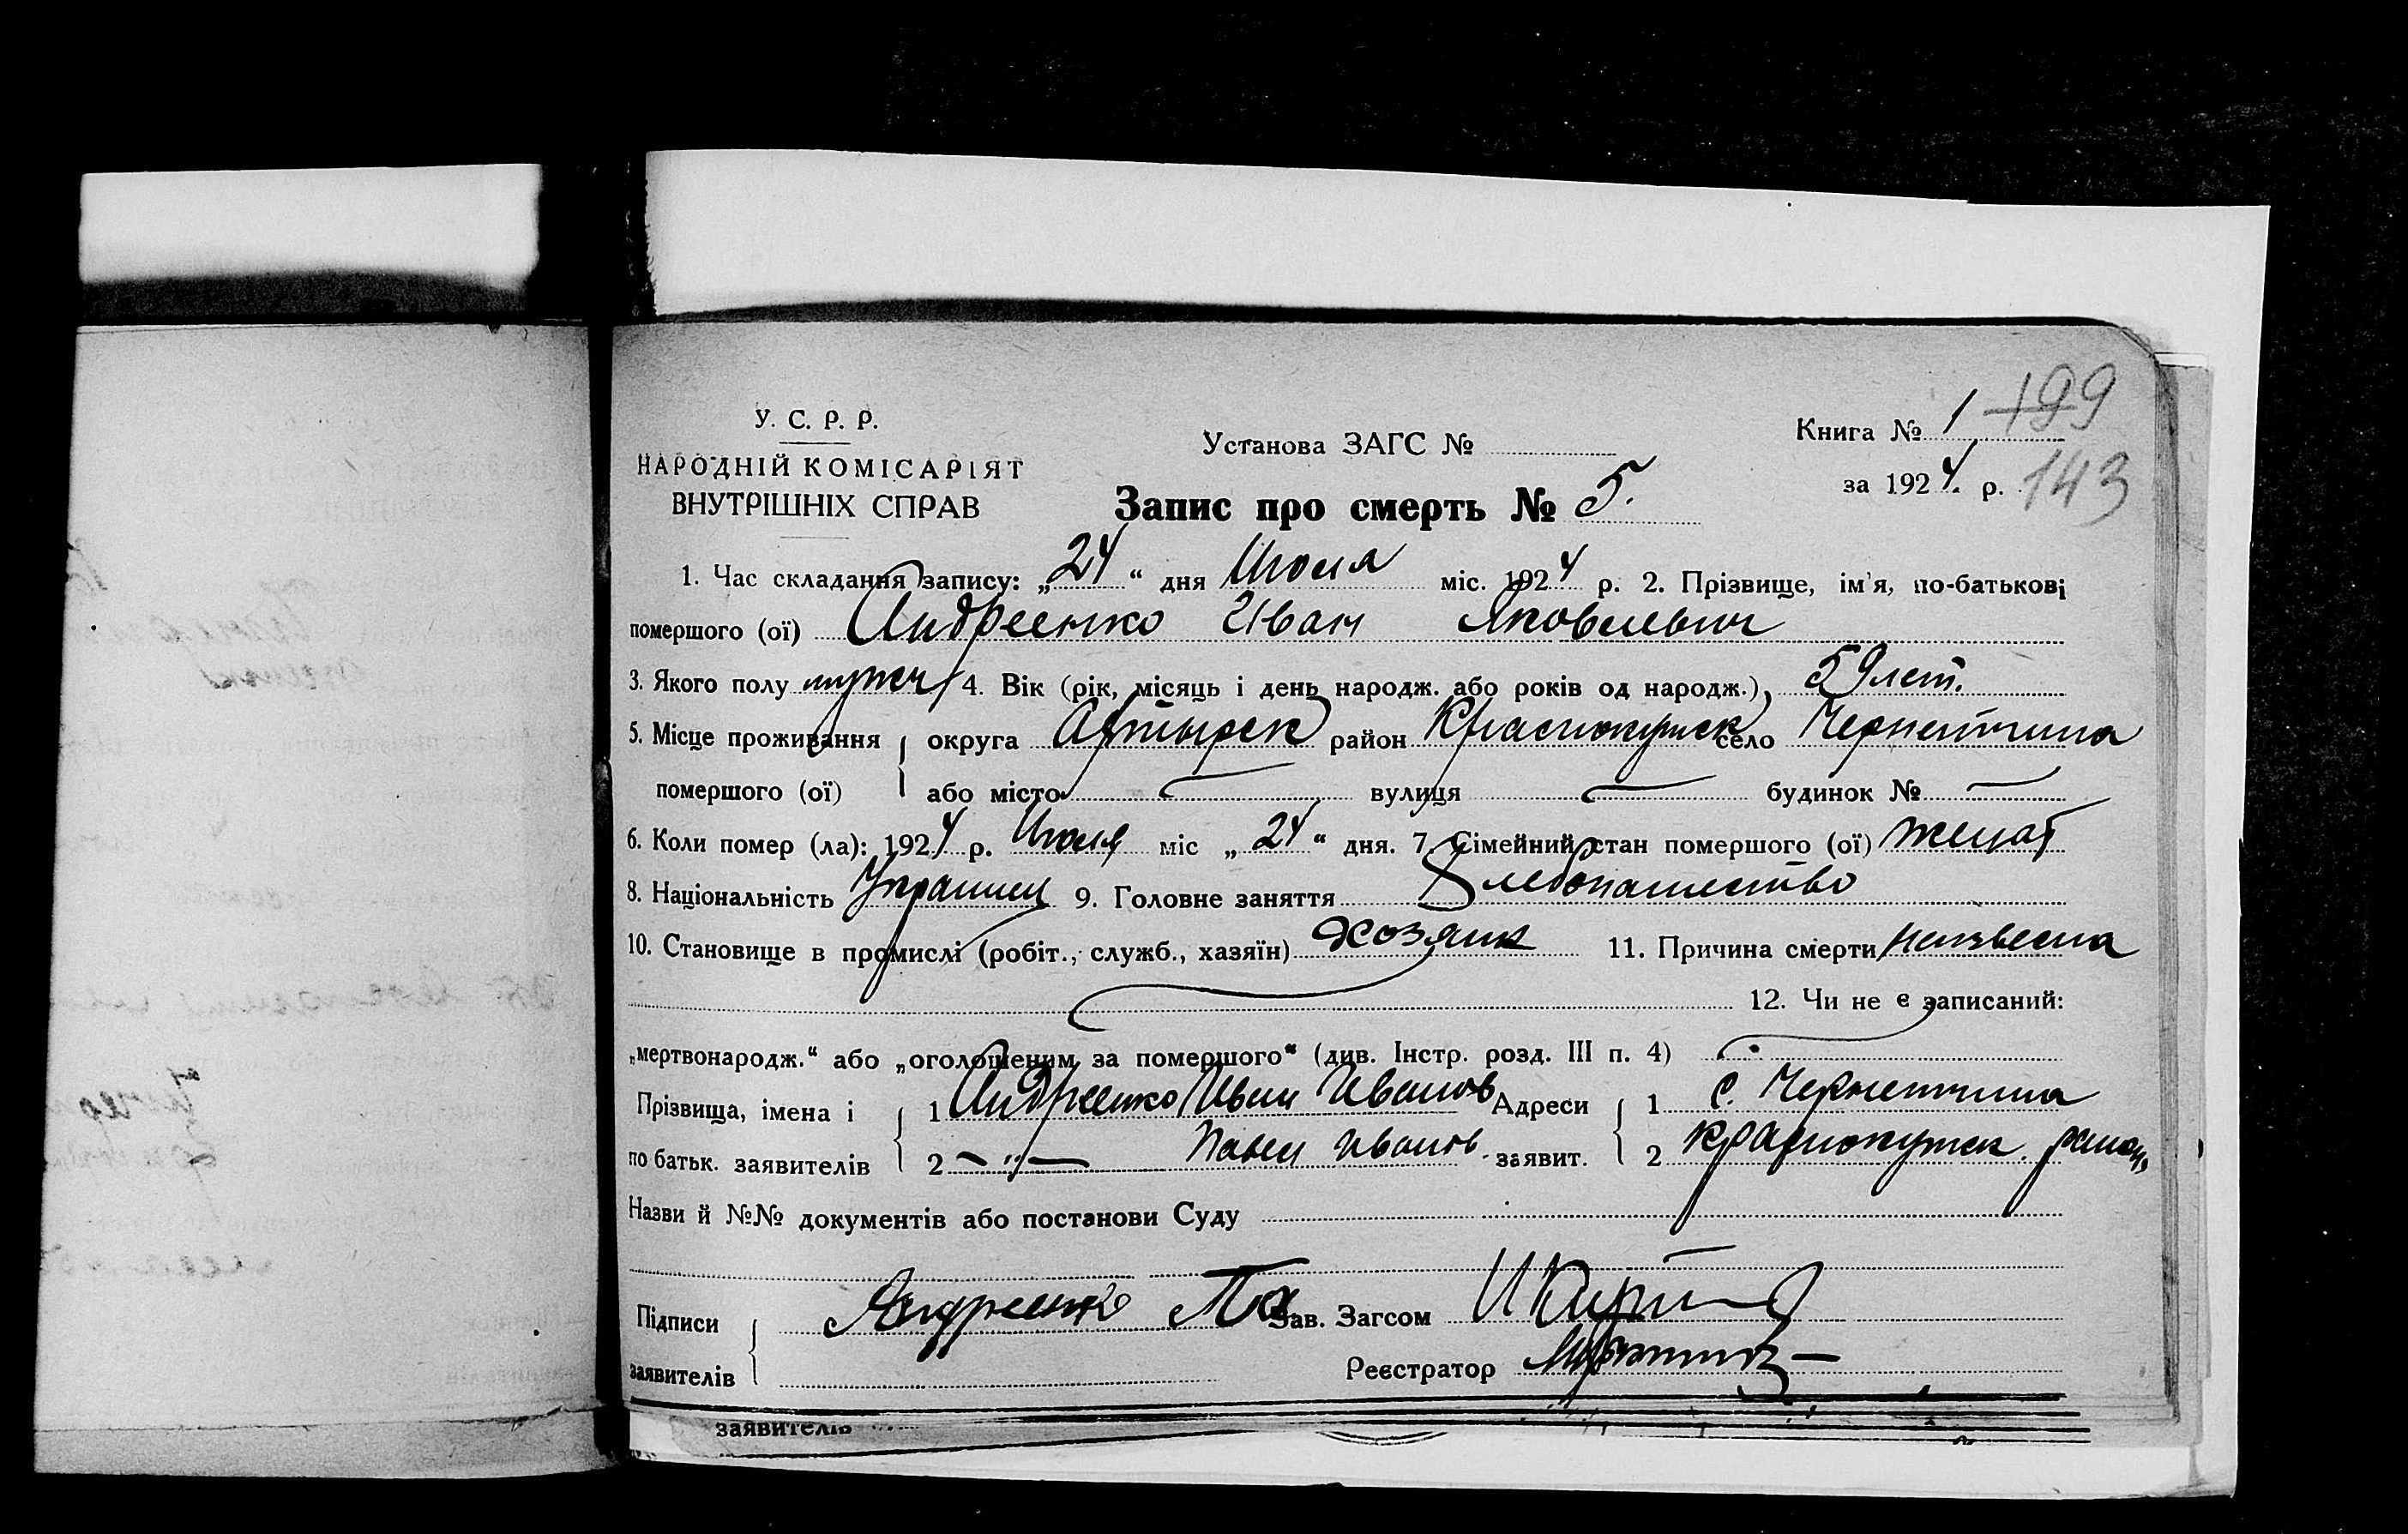 У. С. Р. Р.
НАРОДНІЙ КОМІСАРІЯТ
ВНУТРІШНІХ СПРАВ
Установа ЗАГС №
Книга № 1 199
за 1924 р. 143
Запис про смерть № 5.
1. Час складання запису: „24“ дня Июля міс. 1924 р. 2. Прізвище, ім'я, по-батькові
помершого (ої) Андреенко Иван Яковлевич
3. Якого полу мужч 4. Вік (рік, місяць і день народж. або років од народж.) 59 лет.
5. Місце проживання округа Ахтырск район Краснокутск село Чернетчина
помершого (ої) або місто — вулиця — будинок № —
6. Коли помер (ла): 1924 р. Июля міс „24“ дня. 7. Сімейний стан помершого (ої) женат
8. Національність Украинец 9. Головне заняття Хлебопашество
10. Становище в промислі (робіт., служб., хазяїн) Хозяин 11. Причина смерти неизвесна
12. Чи не є записаний:
„мертвонародж.“ або „оголошеним за помершого“ (див. Інстр. розд. III п. 4) —
Прізвища, імена і 1 Андреенко Иван Иванов Адреси 1 с. Чернетчина
по батьк. заявителів 2 — „ — Павел Иванов. заявит. 2 Краснокутск. район
Назви й №№ документів або постанови Суду
Підписи Андреенко Зав. Загсом
заявителів Реєстратор
заявителів